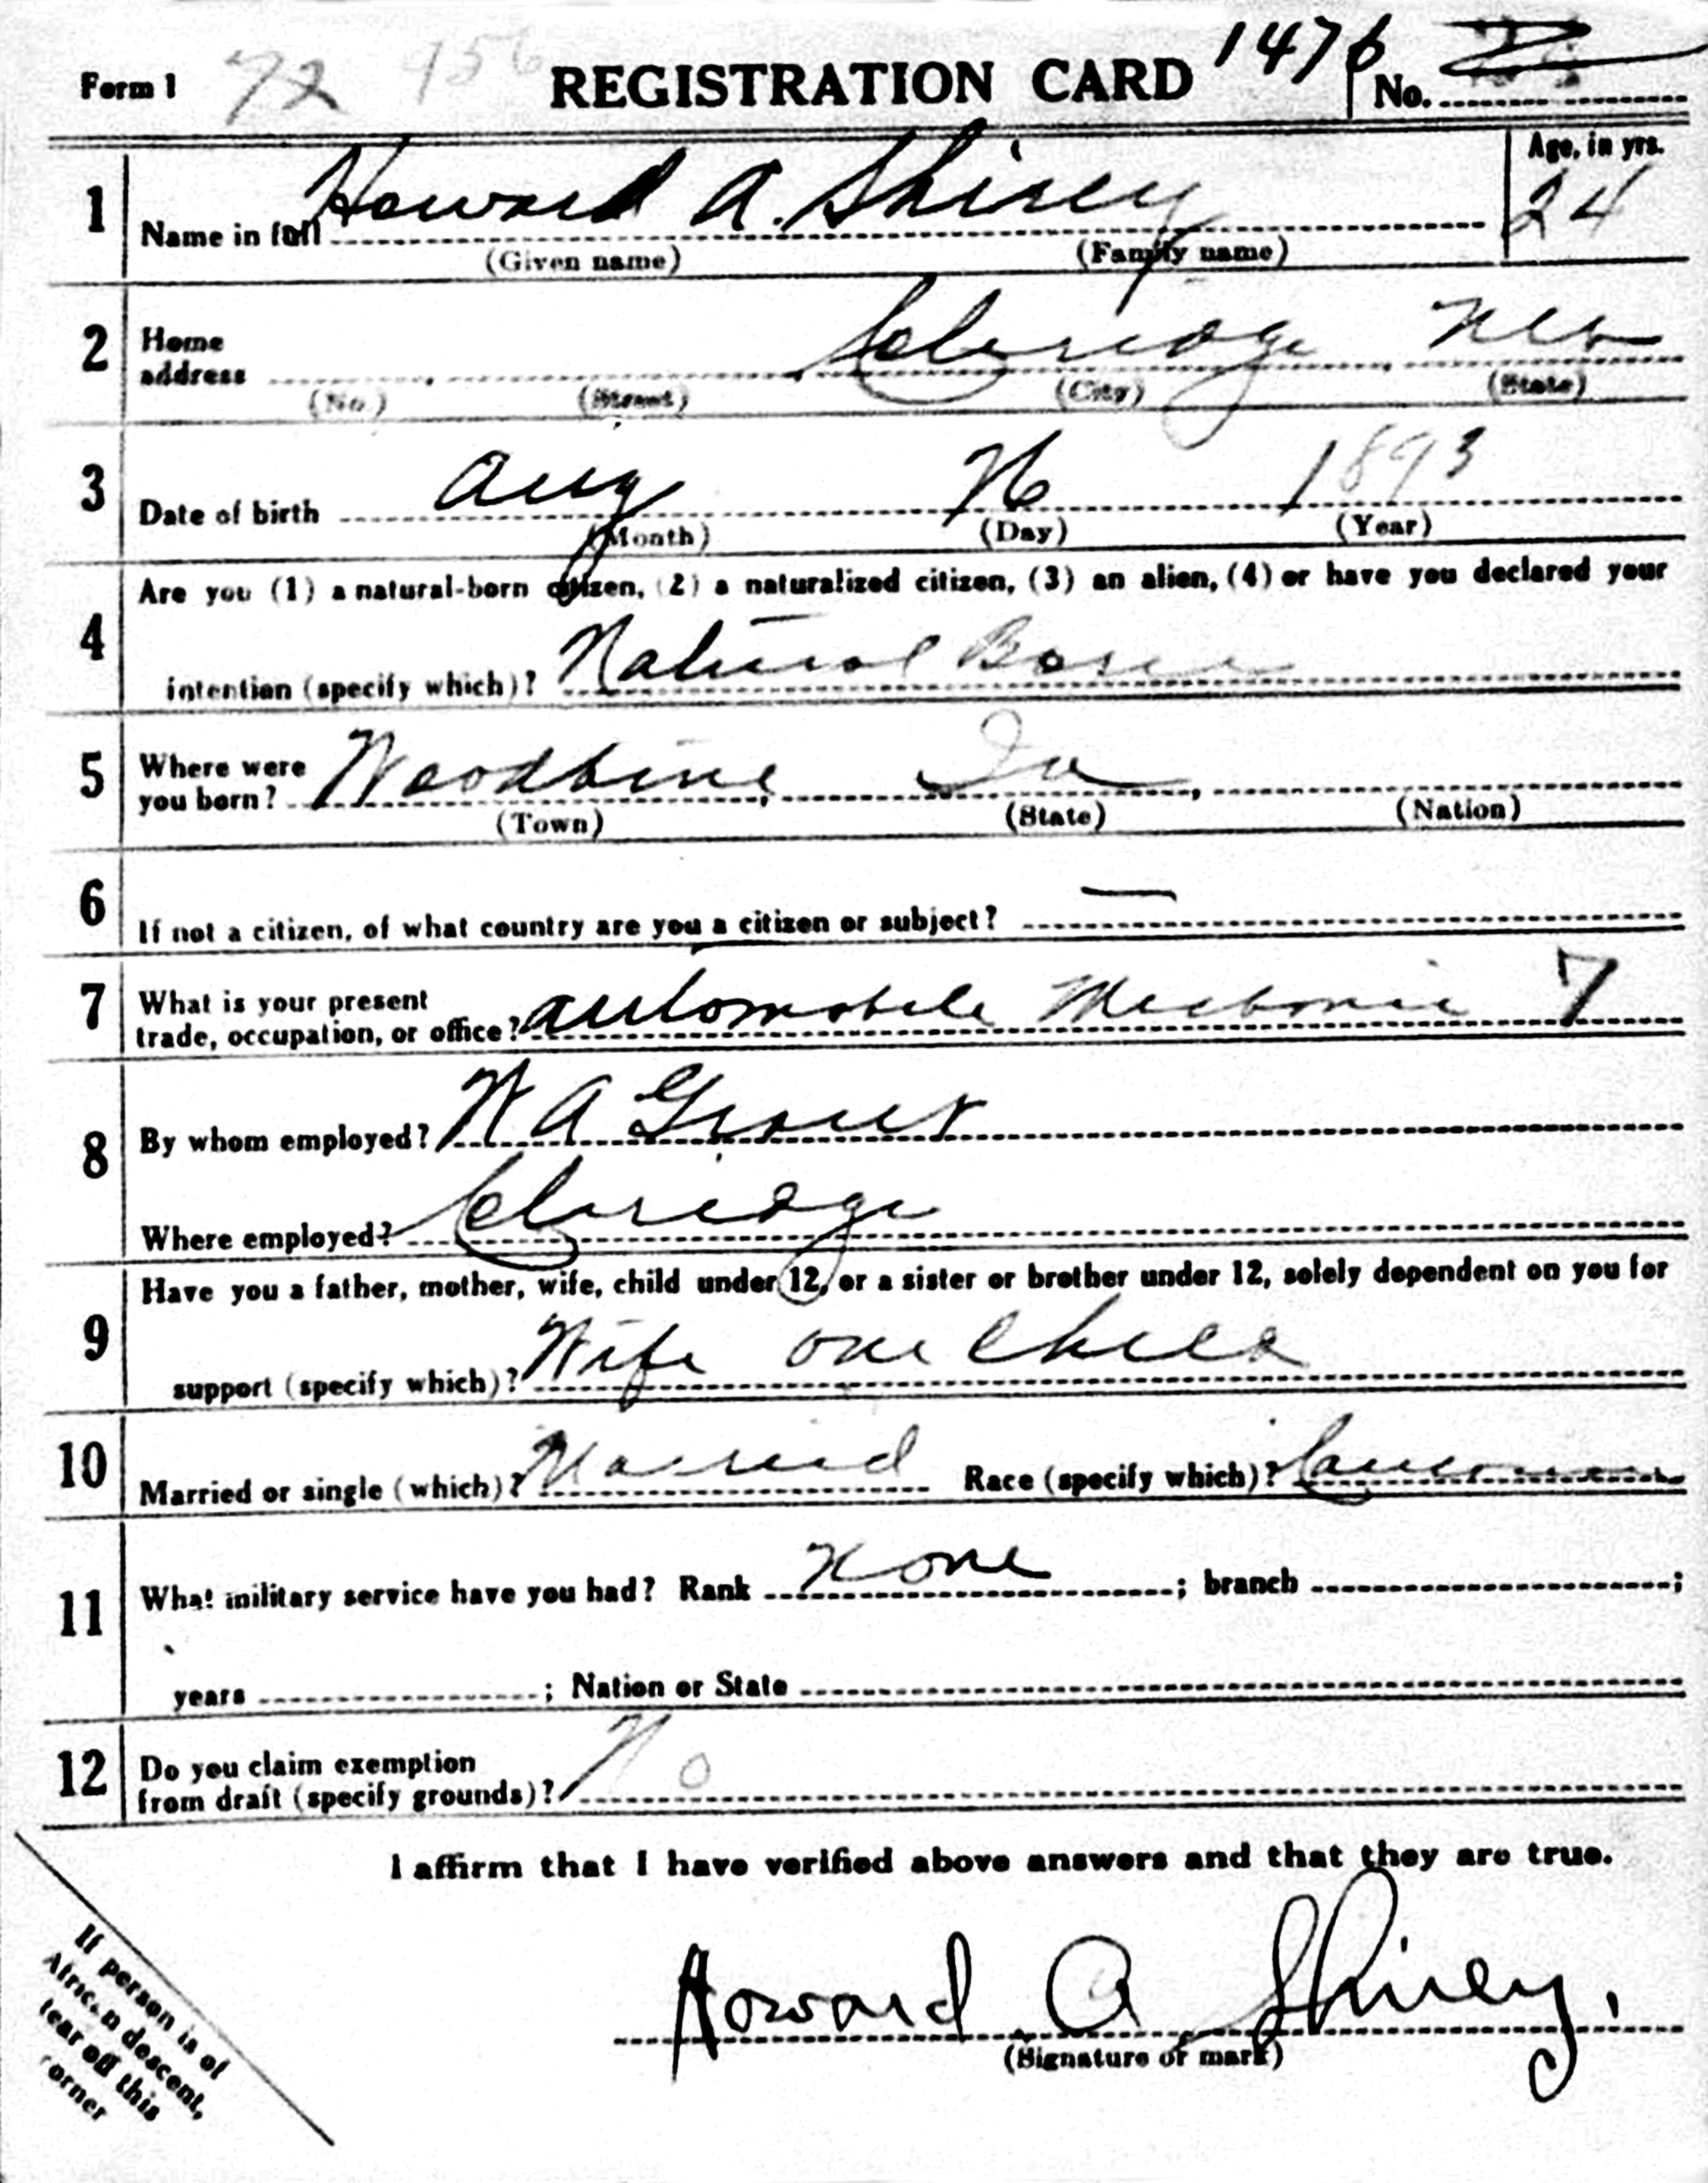 Form 1 72 956 REGISTRATION CARD 1476 No.
1 Name in full Howard A. Shirey Age, in yrs. 24
(Given name) (Family name)
2 Home address Coleridge Neb
(No.) (Street) (City) (State)
3 Date of birth Aug 26 1893
(Month) (Day) (Year)
4 Are you (1) a natural-born citizen, (2) a naturalized citizen, (3) an alien, (4) or have you declared your
intention (specify which)? Natural Born
5 Where were
you born? Woodbine Ia
(Town) (State) (Nation)
6 If not a citizen, of what country are you a citizen or subject? —
7 What is your present
trade, occupation, or office? Automobile Mechanic 7
8 By whom employed? W A
Where employed? Coleridge
9 Have you a father, mother, wife, child under 12, or a sister or brother under 12, solely dependent on you for
support (specify which)? Wife one Child
10 Married or single (which)? Married Race (specify which)? Caucasian
11 What military service have you had? Rank None ; branch ;
years ; Nation or State
12 Do you claim exemption
from draft (specify grounds)? No
I affirm that I have verified above answers and that they are true.
Howard A Shirey.
(Signature or mark)
If person is of
African descent,
tear off this
corner